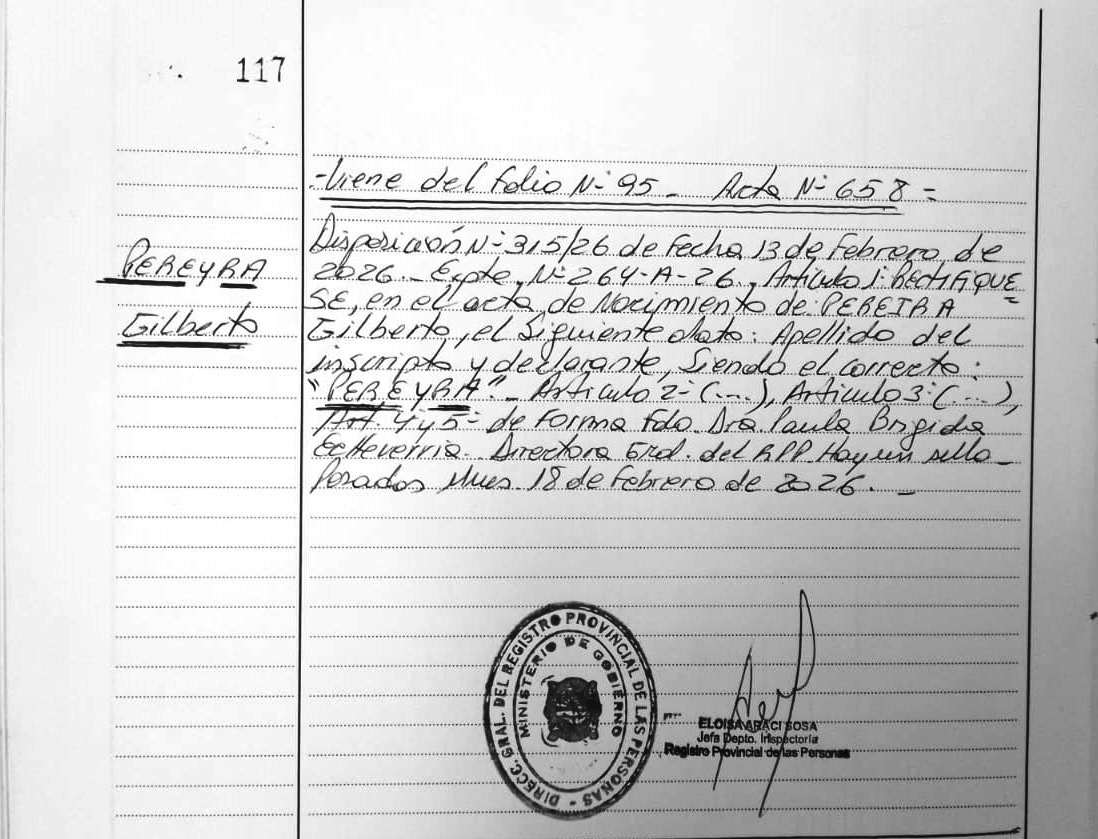 117
-Viene del folio Nº 95_ Acta Nº 658=
PEREYRA
Gilberto
Disposición Nº 315/26 de Fecha 13 de Febrero de
2026._ Expte. Nº 264-A-26., Artículo 1: RECTIFIQUE
SE, en el acta de Nacimiento de: PEREIRA
Gilberto, el siguiente dato: Apellido del
inscripto y declarante, siendo el correcto:
"PEREYRA"._ Artículo 2º (...), Artículo 3º (...),
Art. 4 y 5º de Forma Fdo. Dra. Paula Brigida
Echeverria. Directora Gral. del RPP. Hay un sello_
Posadas Mnes. 18 de Febrero de 2026._
DIRECC. GRAL. DEL REGISTRO PROVINCIAL DE LAS PERSONAS -
MINISTERIO DE GOBIERNO
ELOISA ARACI SOSA
Jefa Depto. Inspectoría
Registro Provincial de las Personas